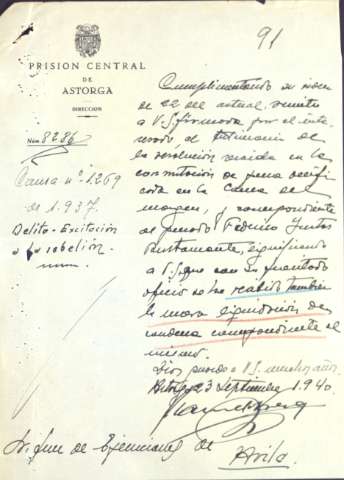 91
PRISION CENTRAL
DE
ASTORGA
DIRECCION
Núm. 8286
Causa nº 1269
de 1.937.
Delito-Excitación
a la rebelión.
Cumplimentando su orden
de 22 del actual, remito
a V.S. firmado por el inte-
resado, el testimonio de
la resolución recaida en la
conmutación de pena verifi-
cada en la Causa del
margen, y correspondiente
al penado Federico
Bustamante, significando
a V.S. que con su
oficio se ha recibido también
la nueva liquidación de
condena correspondiente al
mismo.
Dios guarde a V.S. muchos años.
Astorga 23 Septiembre 1940.
de Ejecuciones de
Avila.